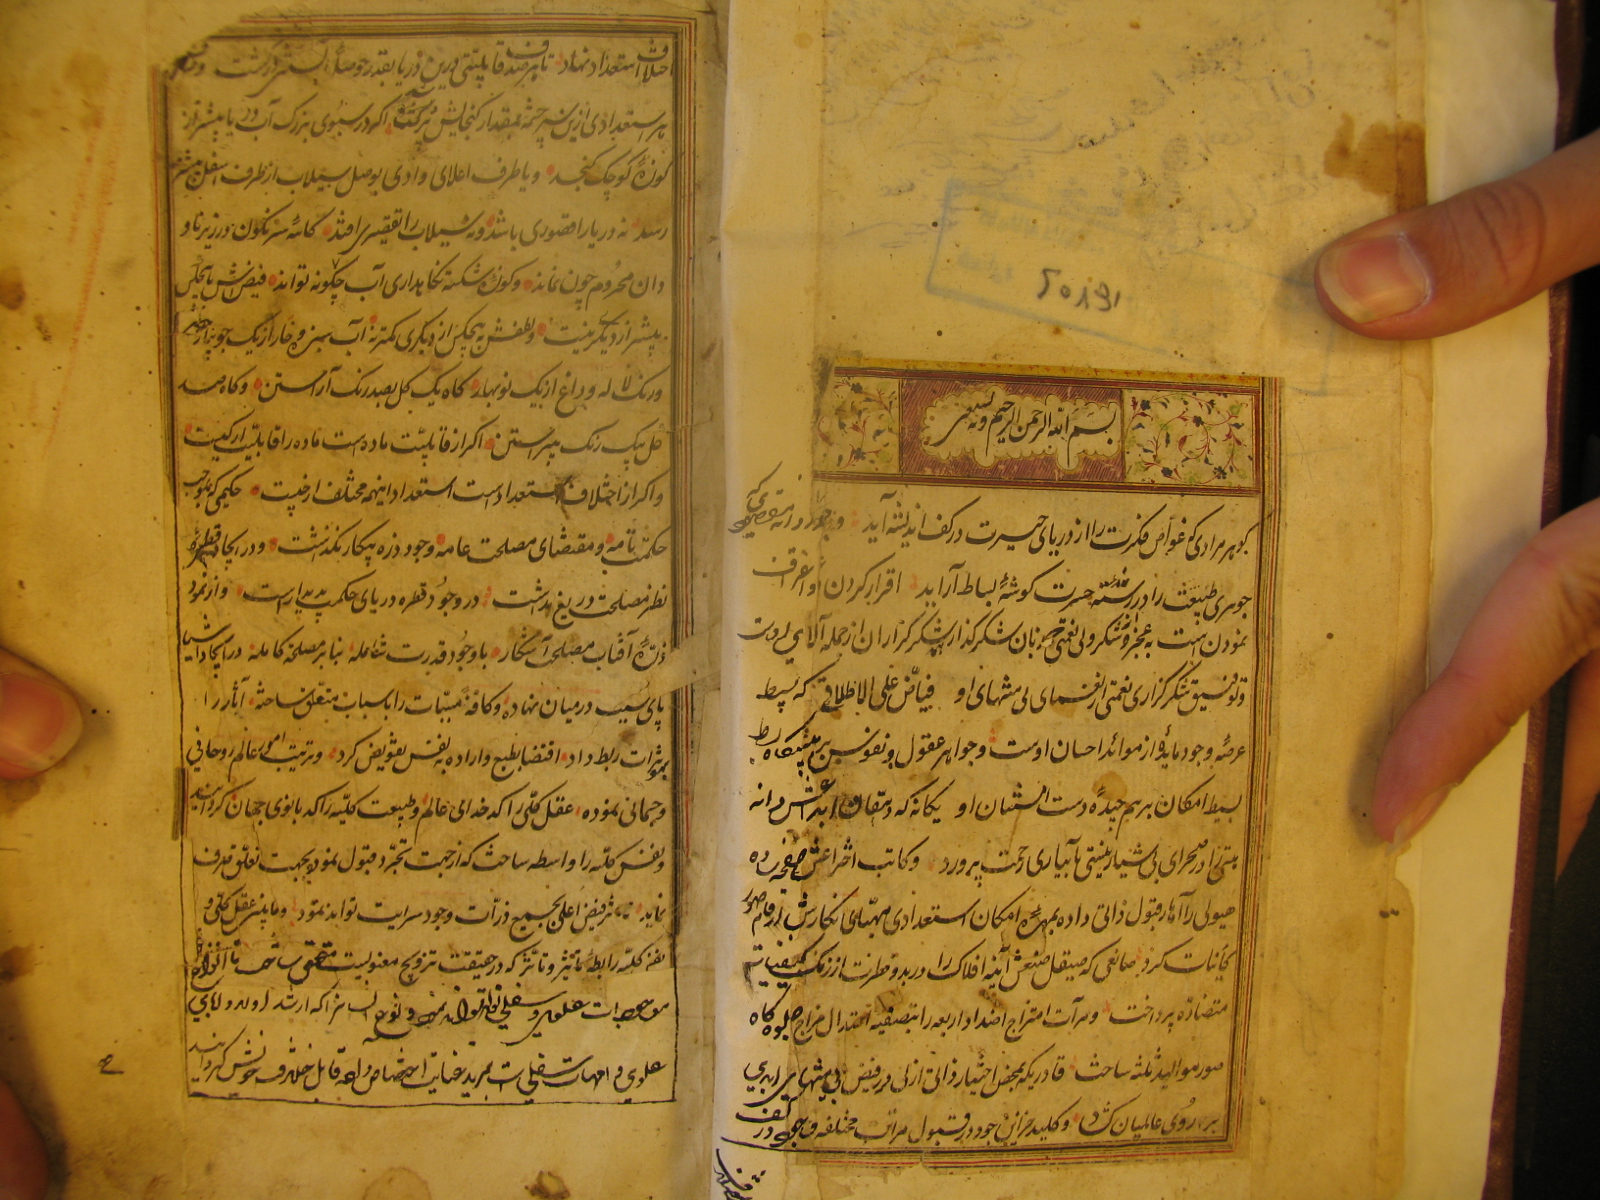 بسم الله الرحمن الرحیم وبه نستعین
گوهر مرادی که غواص فکرت را از دریای حیرت در کف اندیشه آید و جواهر
جوهری طبیعت را در رسته حسرت گوشهٔ بساط آراید اقرار کردن و اعتراف
نمودن است به عجز از شکر ولی نعمتی که زبان شکرگذار شکرگزاران از جمله آلای اوست
و توفیق شکرگزاری نعمتی از نعمای بی منتهای او فیاض علی الاطلاقی که بسیط
عرصه وجود مایدهٔ از موائد احسان اوست و جواهر عقول و نفوس بر پیشگاه
بسیط امکان برهم چیدهٔ دست امتنان او یگانه که دهقان ابداعش دانه
هستی را در صحرای بی شیار نیستی با آبیاری رحمت بپرورد و کاتب اختراعش صفحه ساده
هیولی را آهار قبول ذاتی داده بمهره امکان استعدادی مهیای نگارش ارقام صور
کاینات کرد صانعی که صیقل صنعش آینه افلاک را در بدو فطرت از زنگ کیفیات
متضاده پرداخت و مرآت امتزاج اضداد اربعه را بتصفیه اعتدال مزاج جلوه گاه
صور موالید ثلثه ساخت قادریکه بمحض اختیار ذاتی ازلی در فیض بی منتهای ابدی
بر روی عالمیان گشاد و کلید خزاین جود در قبول مراتب مختلفه وجود در کف
اختلاف استعداد نهاد تا هر صدف قابلیتی درین دریا بقدر حوصله
هر استعدادی ازین سرچشمه بمقدار گنجایش اگر در سبوی بزرگ آب دریا بیشتر از
کوزهٔ کوچک گنجد و یا طرف اعلای وادی بوصل سیلاب از طرف اسفل پیشتر
رسد نه دریا را قصوری باشد و نه سیلاب را تقصیری افتد کاسهٔ سرنگون در زیر ناو
دان محروم چون نماند و کوزهٔ شکسته نگاهداری آب چگونه تواند فیضش با هیچکس
بیشتر از دیگری نیست و لطفش به هیچکس از دیگری کمتر نه آب سبزه و خار از یک جویبار
و رنگ لاله و داغ از یک نوبهار گاه یک گل بصد رنگ آراستن و گاه صد
گل بیک رنگ پیراستن اگر از قابلیت ماده است ماده را قابلیت از کیست
و اگر از اختلاف استعداد است استعداد اینهمه مختلف از چیست حکیمی که بموجب
حکمت تامه و مقتضای مصلحت عامه وجود ذره بیکار نگذاشت و در ایجاد قطرهٔ
نظر مصلحت دریغ نداشت در وجود قطره دریای حکمت پدیدار است و از نمود
ذرهٔ آفتاب مصلحت آشکار با وجود قدرت شامله بنابر مصلحة کامله در ایجاد اشیا
پای سبب در میان نهاده و کافهٔ مسببات را باسباب متعلق ساخته آثار را
بموثرات ربط داد اقتضا بطبع و اراده به نفس تفویض کرد و ترتیب امور عالم روحانی
و جسمانی نموده عقل کلی را کدخدای عالم و طبیعت کلیه را کدبانوی جهان گردانید
و نفس کلیه را واسطه ساخت که از جهت تجرد قبول نموده بجهت تعلق تصرف
نماید تا اثر فیض اعلی بجمیع ذرات وجود سرایت تواند نمود و مابین عقل کلی و
نفس کلیه رابطهٔ تاثیر و تاثر که در حقیقت تزویج معنویست متحقق ساخت تا انواع
موجودات علوی و سفلی
علوی و امهات سفلی است بمزید عنایت اختصاص داده قابل
2